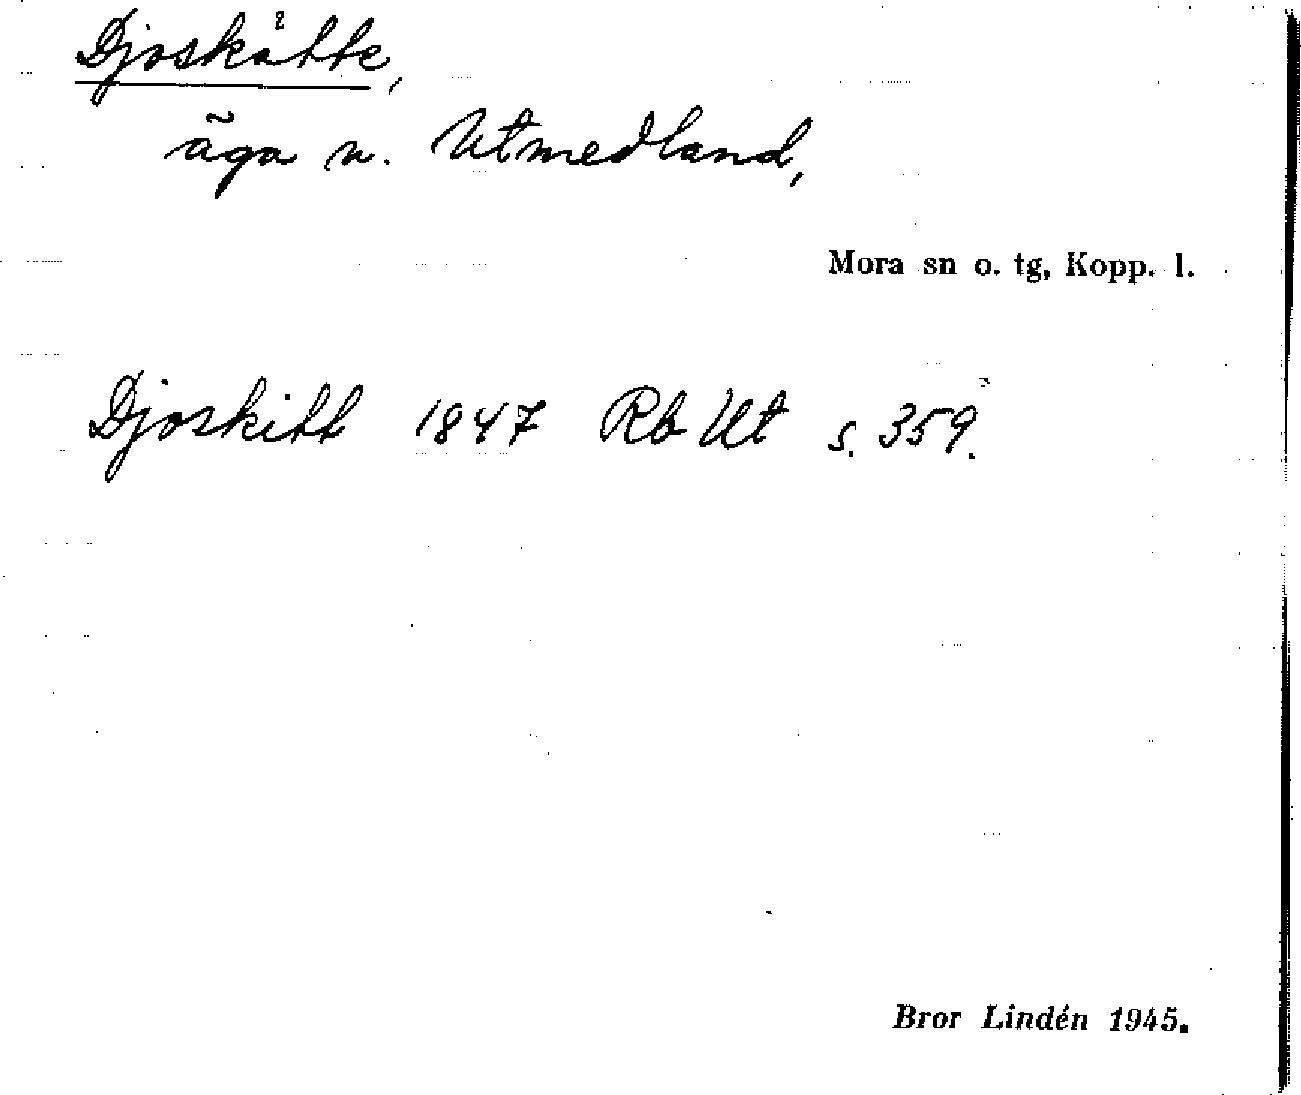 Djoskåtte,
äga n. Utmedland,
Mora sn o. tg, Kopp. l.
Djoskitt 1847 Rb Ut s. 359.
Bror Lindén 1945.